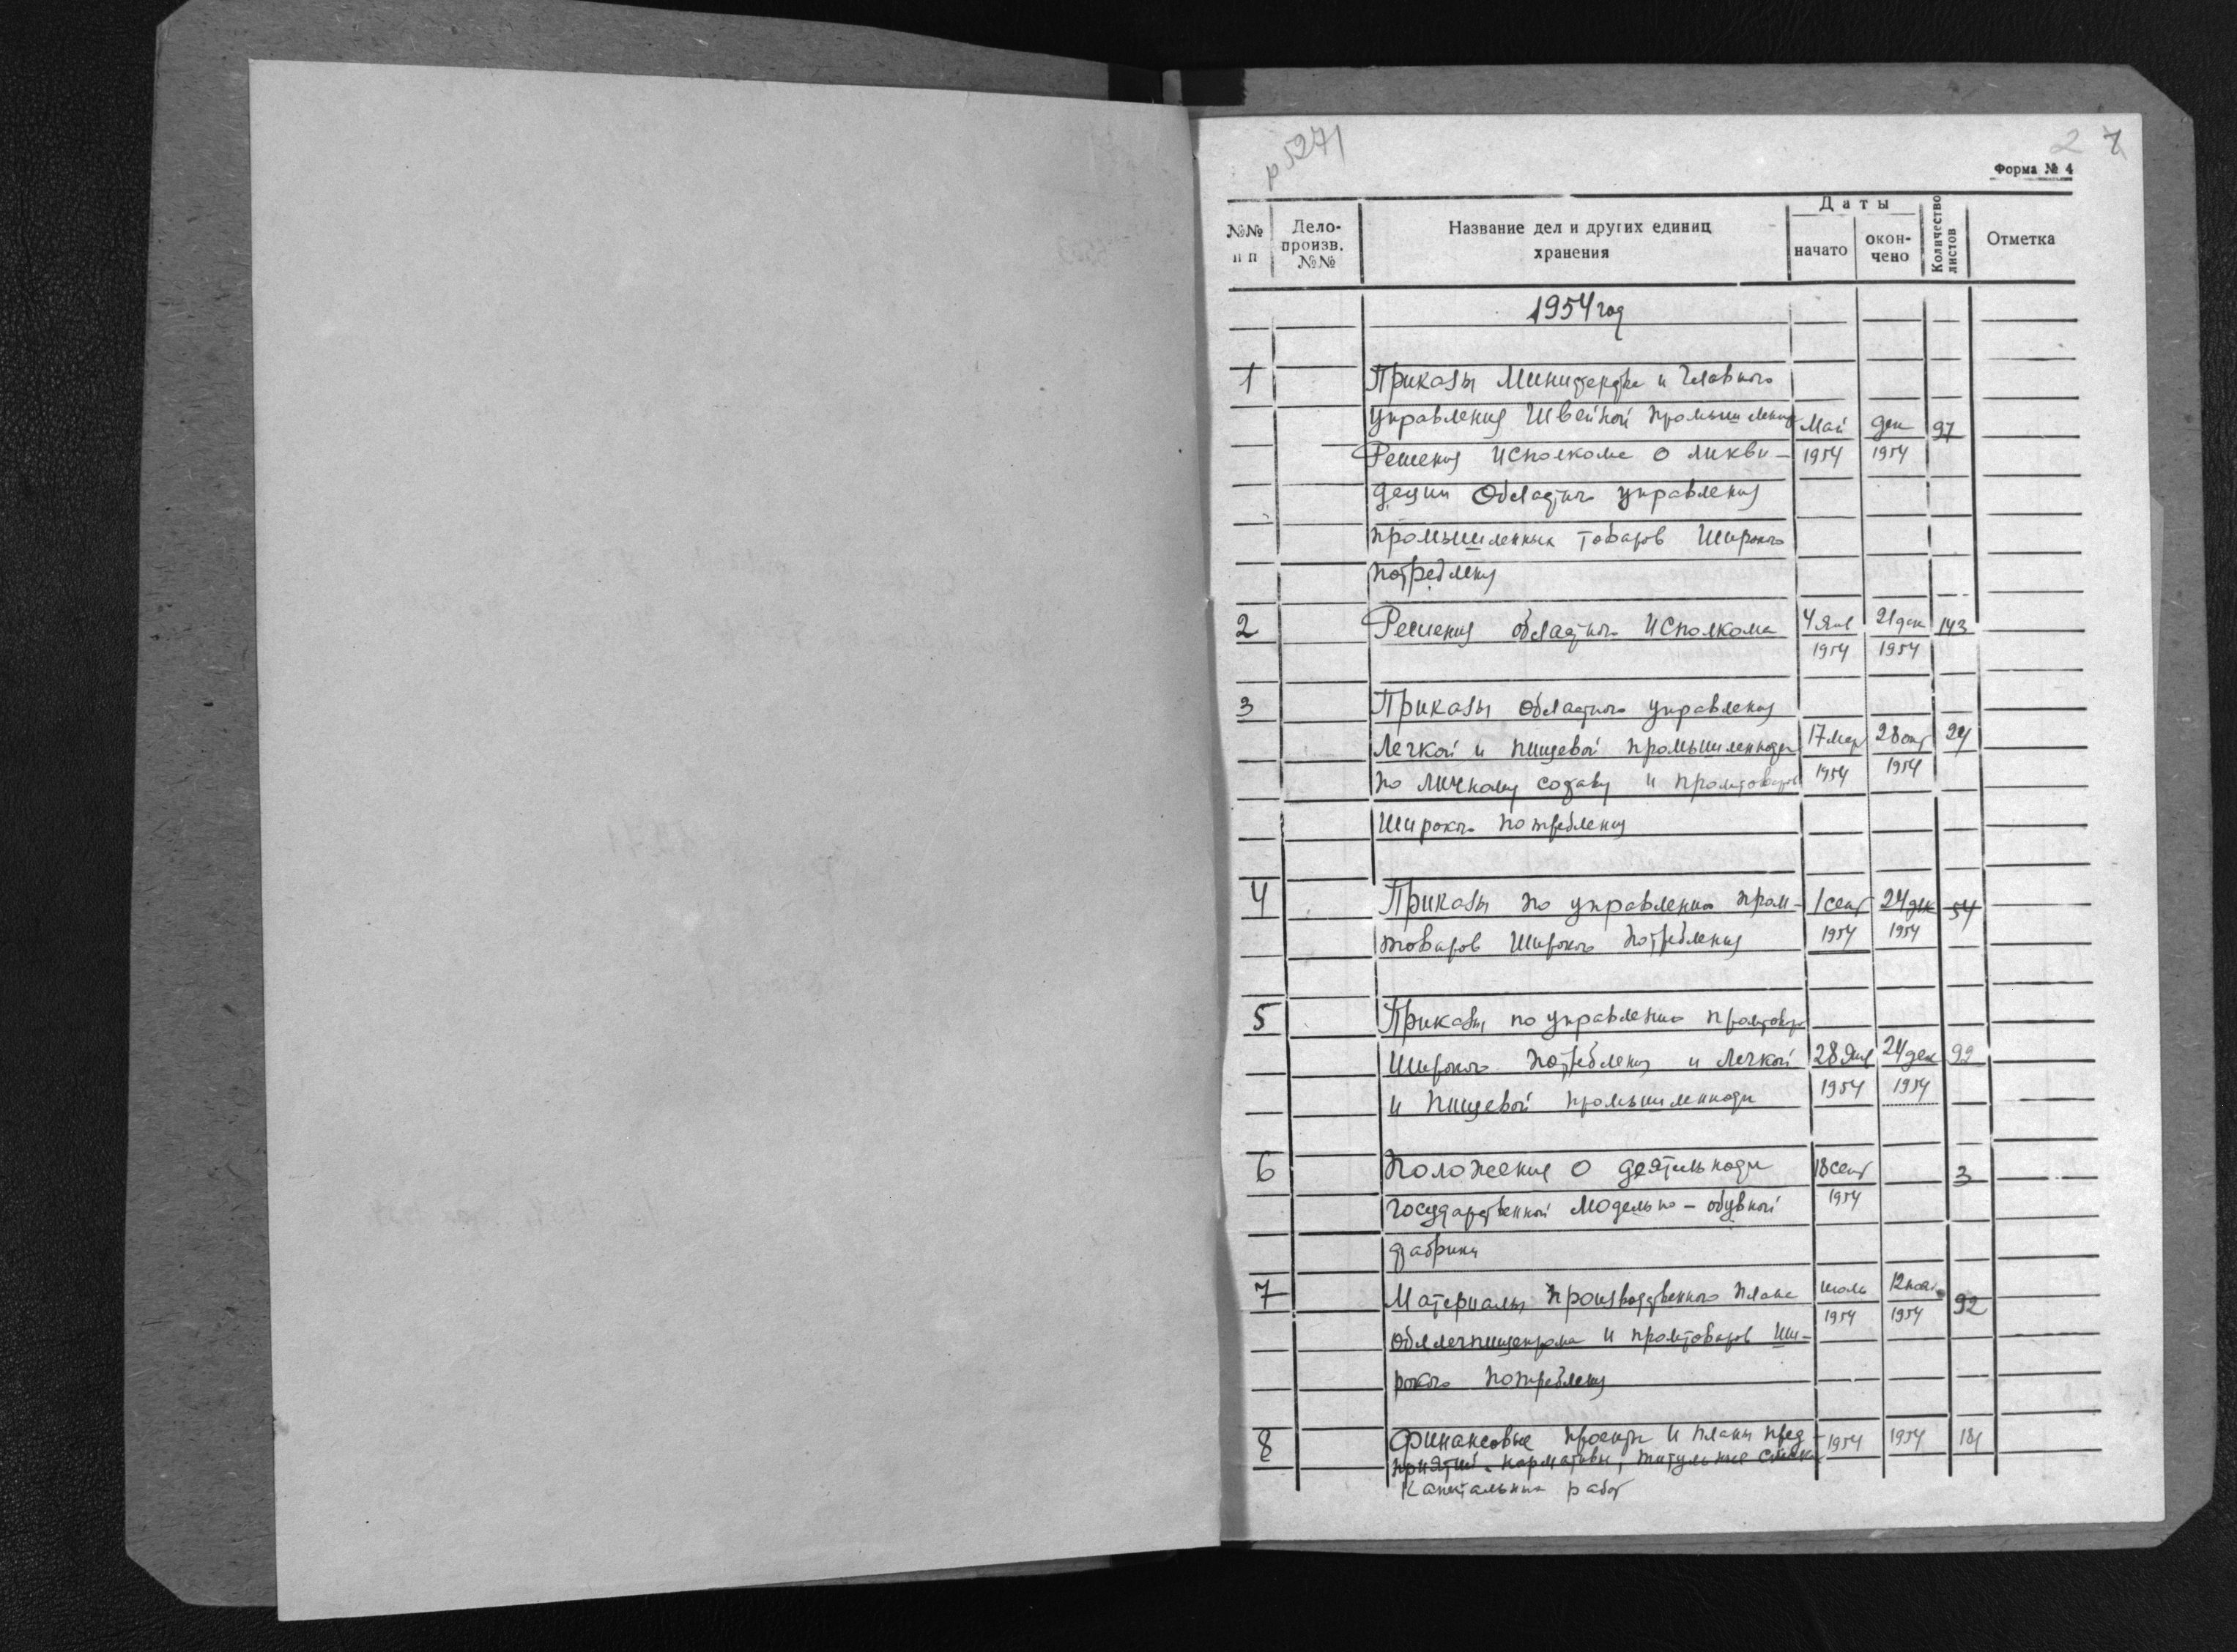 р5271
2
Форма № 4
№№ п п
Дело-произв. №№
Название дел и других единиц хранения
Даты
начато
окончено
Количество листов
Отметка
1954 год
1 Приказы Министерства и Главного
управления Швейной промышленн. Май дек 97
Решения исполкома о ликви- 1954 1954
дации Областного управления
промышленных товаров Широкого
потребления
2 Решения областного Исполкома 4 янв 21 дек 143
1954 1954
3 Приказы областного управления
Легкой и пищевой промышленности 17 мар 28 окт 24
по личному составу и промтоваров 1954 1954
Широкого потребления
4 Приказы по управлению пром- 1 сент 24 дек 54
товаров Широкого потребления 1954 1954
5 Приказы по управлению промтовар
Широкого потребления и легкой 28 янв 24 дек 92
и пищевой промышленности 1954 1954
6 Положения о деятельности 18 сент 3
государственной модельно-обувной 1954
фабрики
7 Материалы производственного плана июль 12 ноя. 92
Обллегпищепрома и промтоваров Ши- 1954 1954
рокого потребления
8 Финансовые проекты и планы пред- 1954 1954 181
приятий. нормативы, титульные списки
Капитальных работ